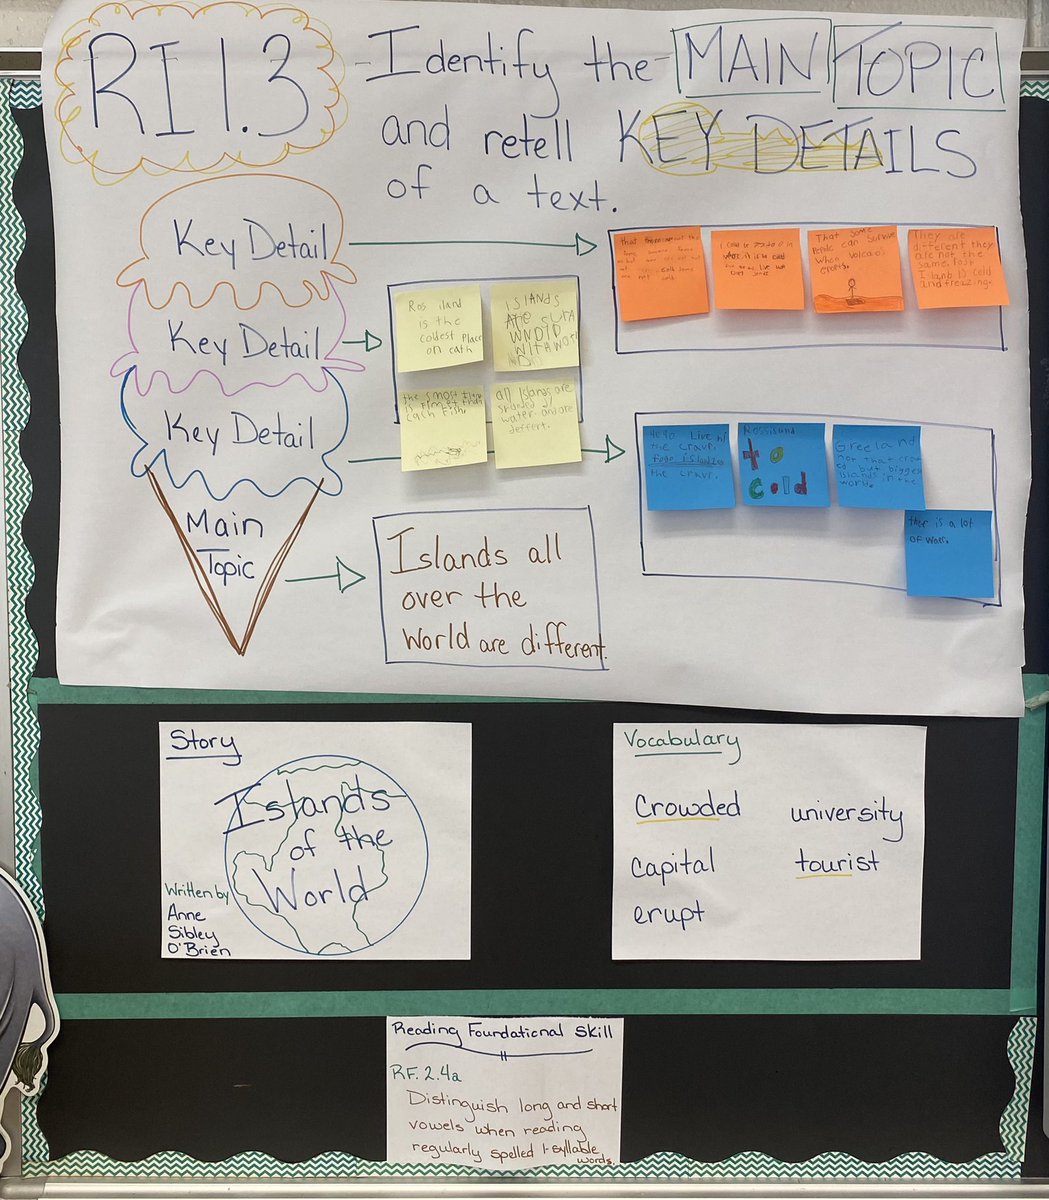 RI 1.3
- Identify the MAIN TOPIC
and retell KEY DETAILS
of a text.
Key Detail
Key Detail
Key Detail
Main
Topic
that
I
cold
That some
Perple can Survive
When volcaos
erupts.
They are
different they
are not the
same. Post
I land is cold
and freazing.
Ros iland
is the
coldest place
on eath
ISLANDS
ARE
WITH
the smost
each Fish.
all Islands are
water. and are
deffert.
Live in
the cravr.
the cravr.
Rossisund
to
cold
Greeland
not that crow
ed but bigges
islands in the
world.
ther is a lot
of water.
Islands all
over the
world are different.
Story
Islands
of the
World
Written by
Anne
Sibley
O'Brien
Vocabulary
Crowded
university
capital
tourist
erupt
Reading Foundational Skill
RF. 2.4a
Distinguish long and short
vowels when reading
regularly spelled 1-syllable
words.